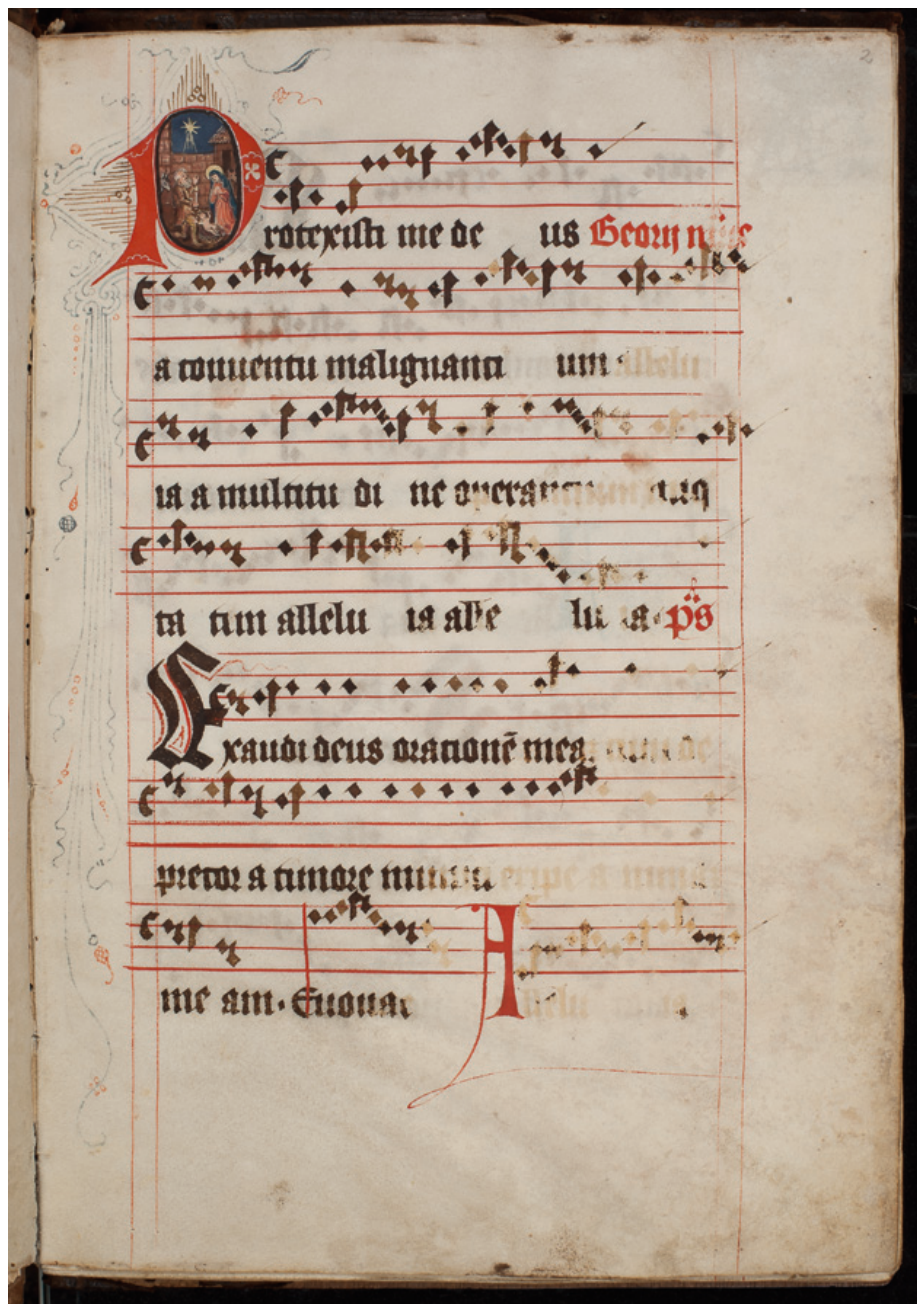 2
Protexisti me de us Georij
a conuentu malignanti um
ia a multitu di ne operanti
ta tim allelu ia alle lu ia ps
Exaudi deus orationē mea cum de
precor a timore inimici eripe a
me am. Euouae A llelu